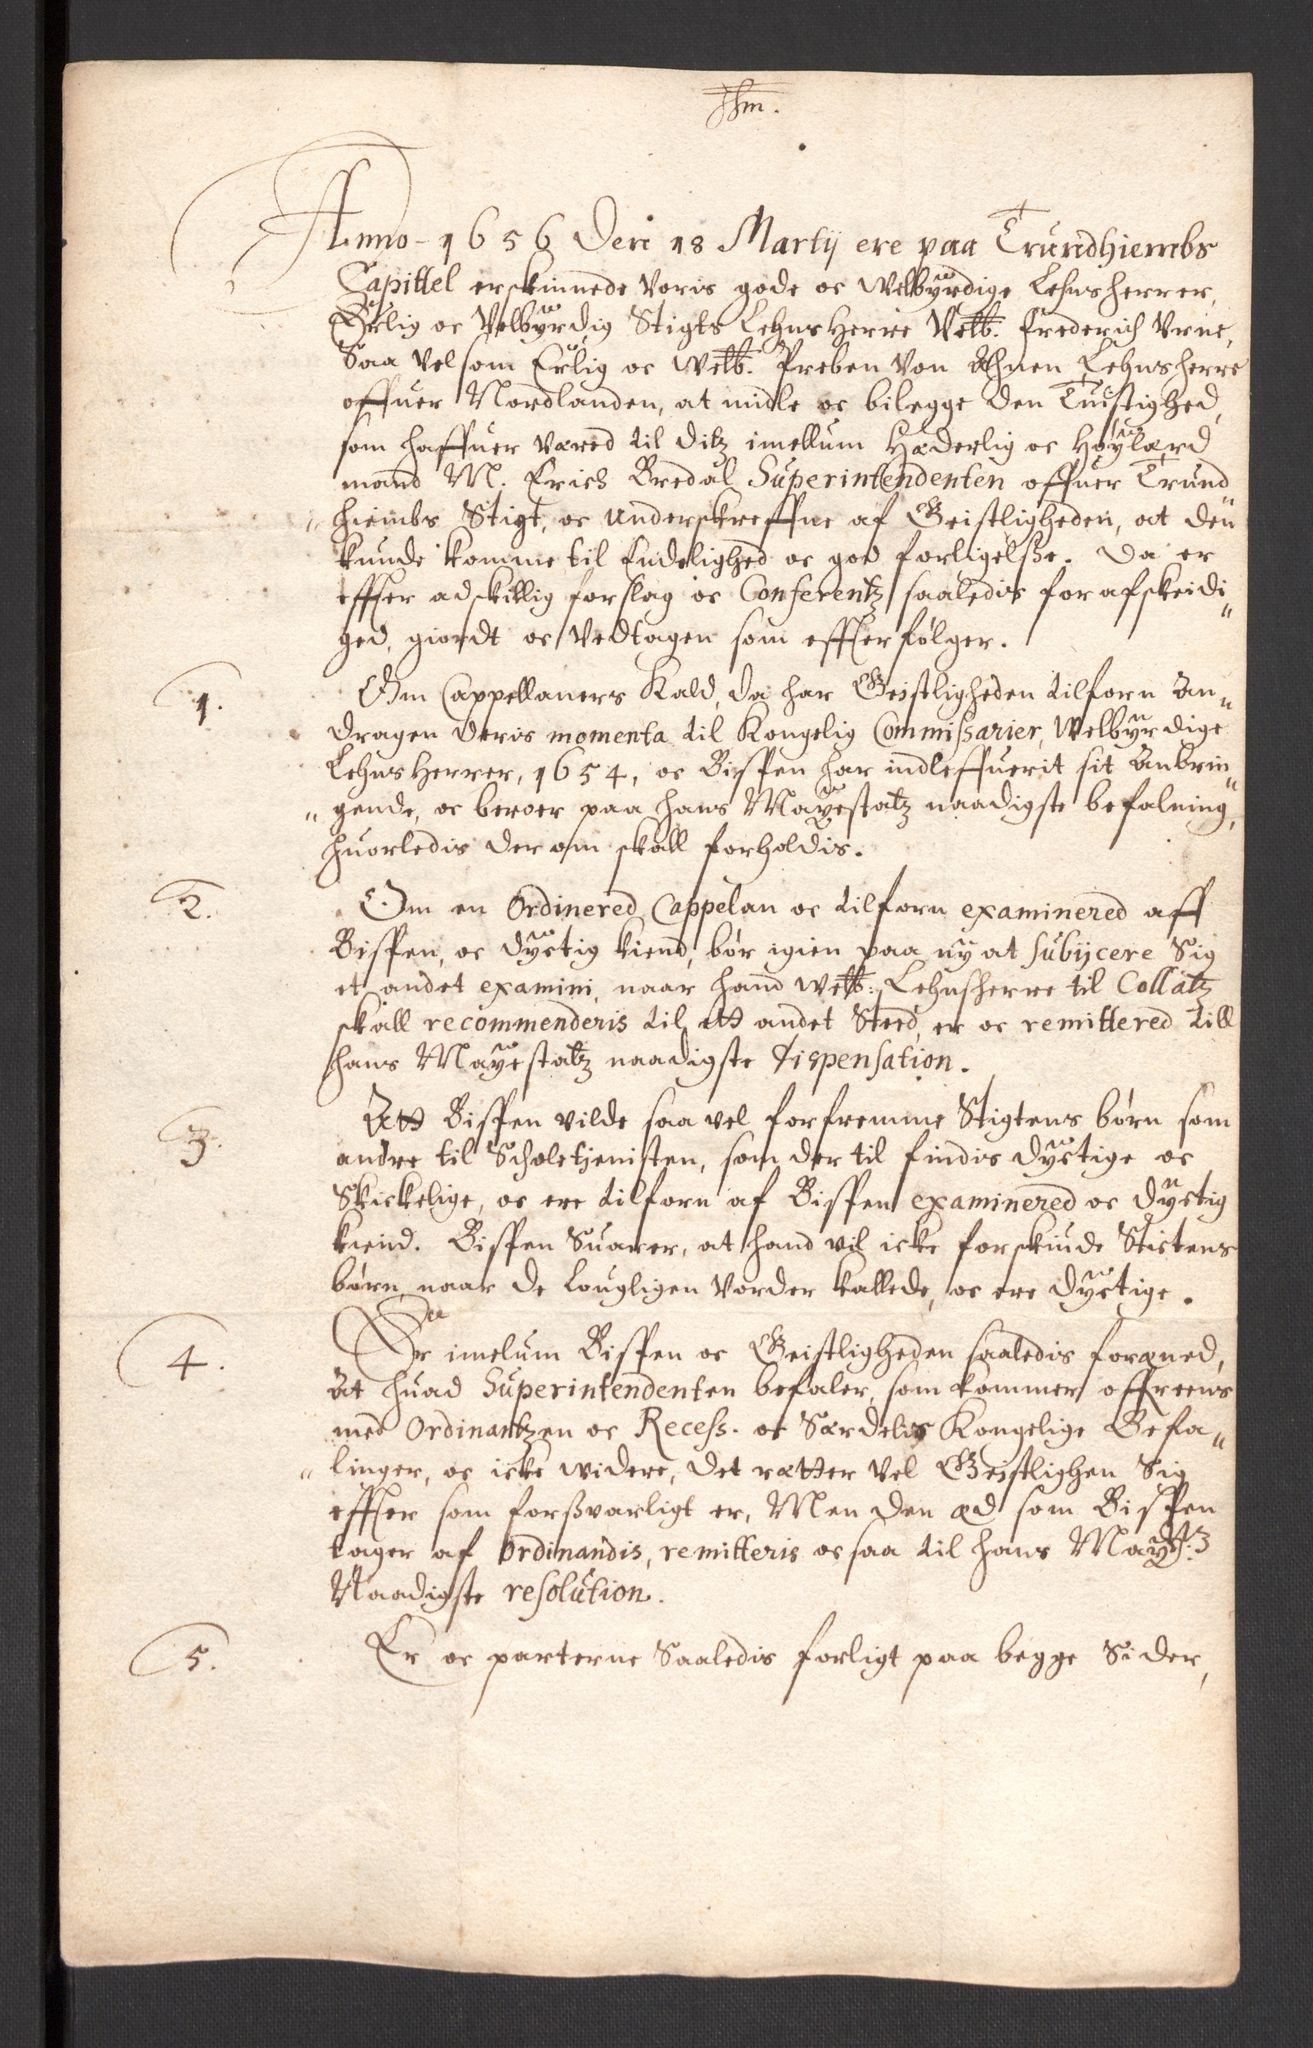 Anno 1656 Den 18 Martij ere paa Trundhiembs
Capittel erskinnede Voris gode oc Welbÿrdige Lehnsherrer,
Erlig oc Velbÿrdig Stigts LehnsHerre Velb. Frederich Vrne,
Saa vel som Erlig oc Welb. Preben Von Ahnen Lehnsherre
offuer Nordlanden, at midle oc bilegge den Tuistighed,
som haffuer Væred til ditz imellum Hæderlig oc Høÿlærd
mand M. Erich Bredal Superintendenten offuer Trund
" hiembs Stigt, oc underskreffne af Geistligheden, at den
kunde komme til Endelighed oc god forligelsse. Da er
effter adskillig forslag oc Conferentz saaledis forafskeidi"
ged, giordt oc Vedtagen som effterfølger.
1. Om Cappellaners Kald, da har Geistligheden tilforn An"
dragen deris momenta til Kongelig Commissarier, Welbÿrdige
LehnsHerrer, 1654, oc Bispen har indleffuerit sit Anbrin"
" gende, oc beroer paa hans Maÿestatz naadigste befalning,
huorledis der om skall forholdis.
2. Om en Ordinered Cappelan oc tilforn examinered aff
Bispen, oc dÿctig kiend, bør igien paa ny at subijcere Sig
et andet examini, naar hand welb: Lehnsherre til Collatz
skall recommenderis til ett andet Sted, er oc remittered till
hans Maÿestatz naadigste dispensation.
3. Att Bispen vilde saa vel forfremme Stigtens børn som
andre til Scholetjenisten, som der til findis dÿctige oc
Skickelige, oc ere tilforn af Bispen examinered oc dÿctig
kiend. Bispen Suarer, at hand vil icke forskiude Stictens
børn naar de lougligen Vorder kallede, oc ere dÿctige.
4. Er imelum Bispen oc Geistligheden saaledis forened,
At huad Superintendenten befaler, som kommer offreens
med Ordinantzen oc Recess. oc Særdelis Kongelige Befa"
" linger, oc icke widere, det retter Vel Geistlighen Sig
effter som forssvarligt er, Men den æd som Bispen
tager af Ordinandis, remitteris oc saa til hans Maÿtz
Naadigste resolution.
5. Er oc parterne Saaledis forligt paa begge Sider,